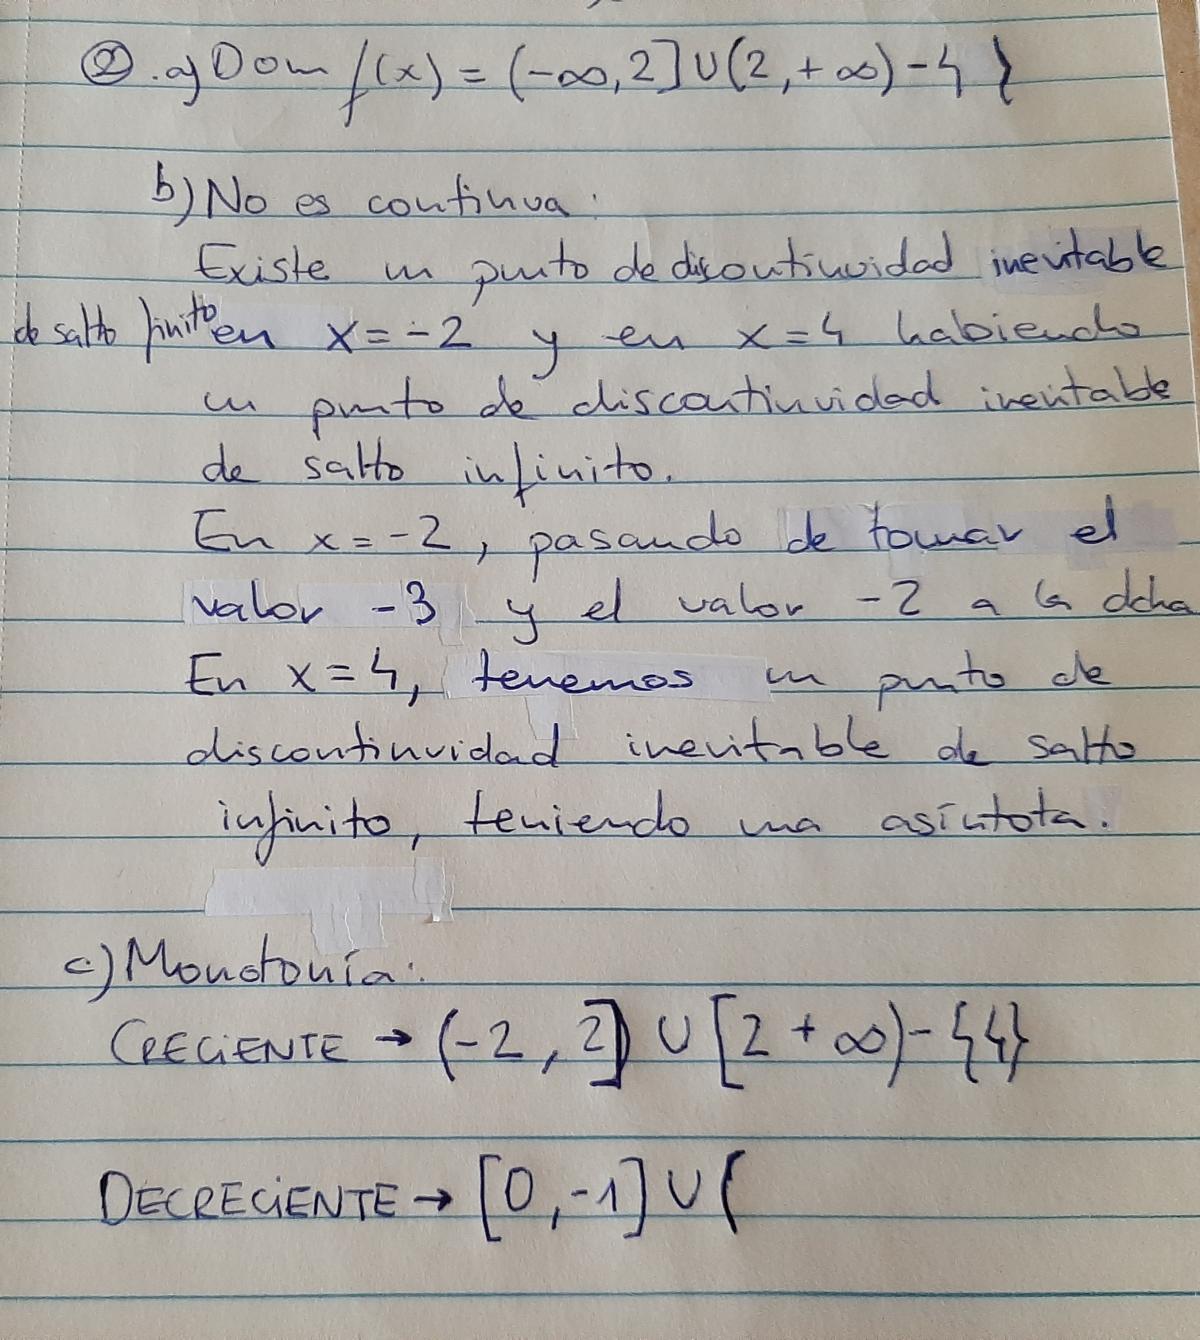 ②.a) Dom f(x) = (-∞,2] U (2,+∞) -4 }
b) No es continua:
Existe un punto de discontinuidad inevitable
de salto finito en x=-2 y en x=4 habiendo
un punto de discontinuidad inevitable
de salto infinito.
En x=-2, pasando de tomar el
valor -3 y el valor -2 a la dcha
En x=4, tenemos un punto de
discontinuidad inevitable de salto
infinito, teniendo una asíntota.
c) Monotonía:
CRECIENTE → (-2, 2] U [2 +∞) - {4}
DECRECIENTE → [0,-1] U (